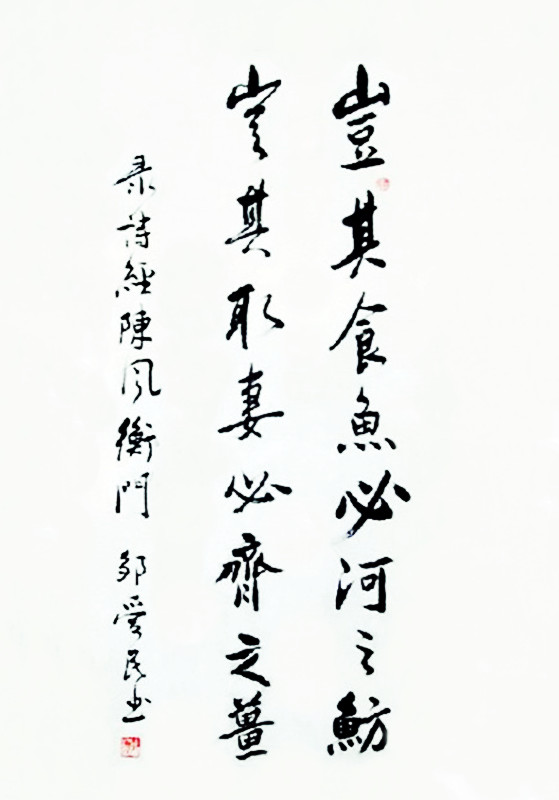 豈其食魚必河之魴
豈其取妻必齊之薑
录詩經陳風衡門 邹爱民书